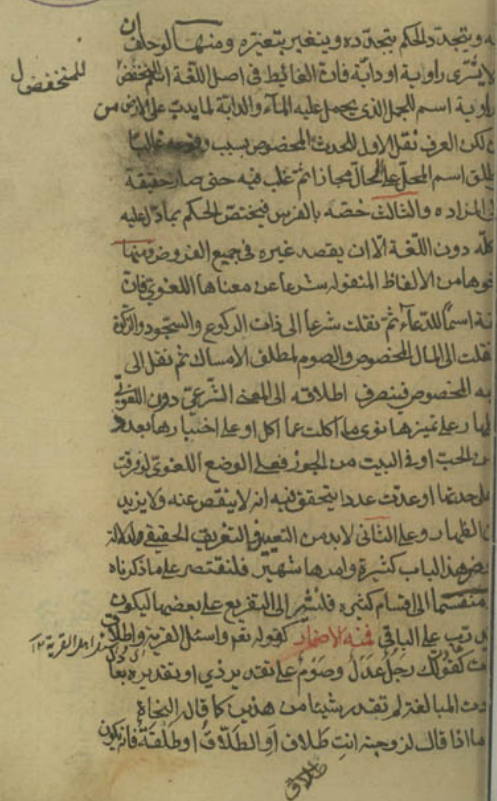 ـه ويتجدد الحكم بتجدده ويتغير بتغيره ومنها لو حلف ان
لا يشترى راوية او دابة فان الغائط فى اصل اللغة اسم للمنخفض
للمنخفض
راوية اسم للجمل الذي يحمل عليه الماء والدابة لما يدب على الارض من
لكن العرف نقل الاول للحدث المخصوص بسبب وقوعه غالبا
اطلق اسم المحل على الحال مجازا ثم غلب فيه حتى صار حقيقة
المزاده والثالث خصه بالفرس فيختص الحكم بما دل عليه
كله دون اللغة الا ان يقصد غيره فى جميع الفروض ومنها
نحوها من الالفاظ المنقولة شرعا عن معناها اللغوي فان
اسما للدعاء ثم نقلت شرعا الى ذات الركوع والسجود والزكوة
نقلت الى المال المخصوص والصوم لمطلق الامساك ثم نقل الى
المخصوص فينصرف اطلاقه الى المعنى الشرعي دون اللغوي
على تميزها نوى ما اكلت عما اكل او على اخبارها بعدد
الحب او فى البيت من الجوز فعلى الوضع اللغوي لو فرقت
حدتها او عدت عددا يتحقق فيه انه لا ينقص عنه ولا يزيد
الظهار وعلى الثانى لابد من التعيين والتعريف الحقيقي ولدلالة
هذا الباب كثيرة وامرها شهير فلنقتصر على ما ذكرناه
منقسما الى اقسام كثيره فلنشر الى التفريع على بعضها ليكون
يرتب على الباقي فمنه الاضمار كقوله تع واسئل القرية واطلاق
اهل القرية ١٢
كقولك رجل عدل وصوم على تقدير ذي او تقديره بعا
دت المبالغة لم تقدر شيئا من هذين كما قال النحاة
ما اذا قال لزوجته انت طلاق او الطلاق او طلقة فانه يكون
طلاق